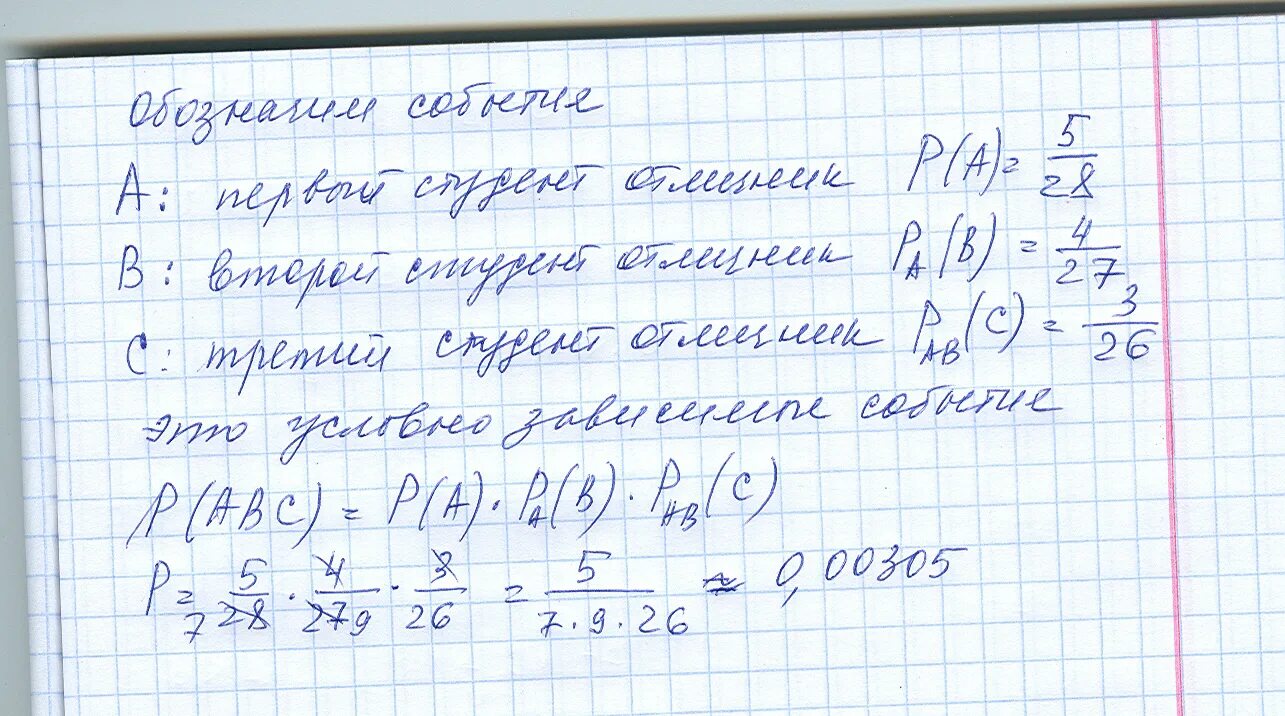 Обозначим события
А: первый студент отличник P(A) = 5/28
В: второй студент отличник P_A(B) = 4/27
С: третий студент отличник P_AB(C) = 3/26
это условно зависимые события
P(ABC) = P(A) · P_A(B) · P_AB(C)
P = 5/28 7 · 4/27 9 · 3/26 = 5/7·9·26 ≈ 0,00305